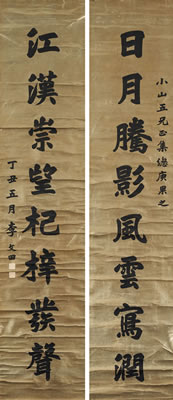 日月騰影風雲寫潤
小山五兄正集總庚景之
江漢崇望杞梓發聲
丁丑五月李文田